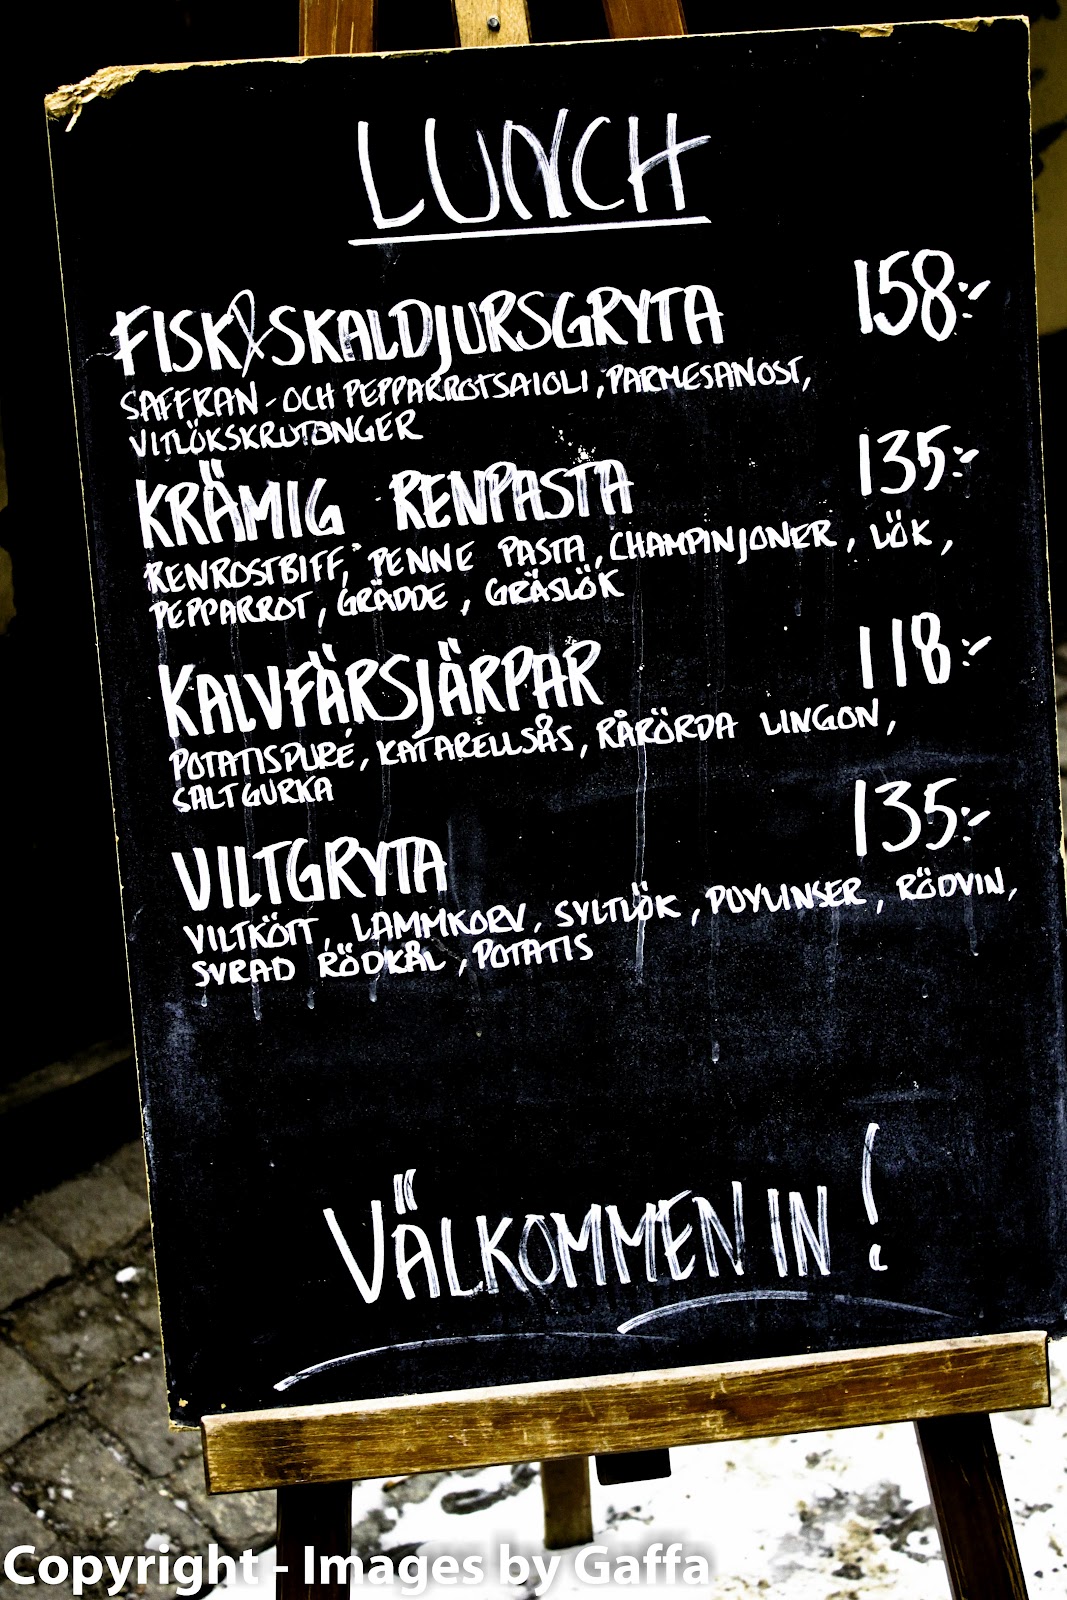 LUNCH
FISK & SKALDJURSGRYTA 158:-
SAFFRAN- OCH PEPPARROTSAIOLI, PARMESANOST,
VITLÖKSKRUTONGER
KRÄMIG RENPASTA 135:-
RENROSTBIFF, PENNE PASTA, CHAMPINJONER, LÖK,
PEPPARROT, GRÄDDE, GRÄSLÖK
KALVFÄRSJÄRPAR 118:-
POTATISPURÉ, KATARELLSÅS, RÅRÖRDA LINGON,
SALTGURKA
VILTGRYTA 135:-
VILTKÖTT, LAMMKORV, SYLTLÖK, PUYLINSER, RÖDVIN,
SYRAD RÖDKÅL, POTATIS
VÄLKOMMEN IN!
Copyright - Images by Gaffa